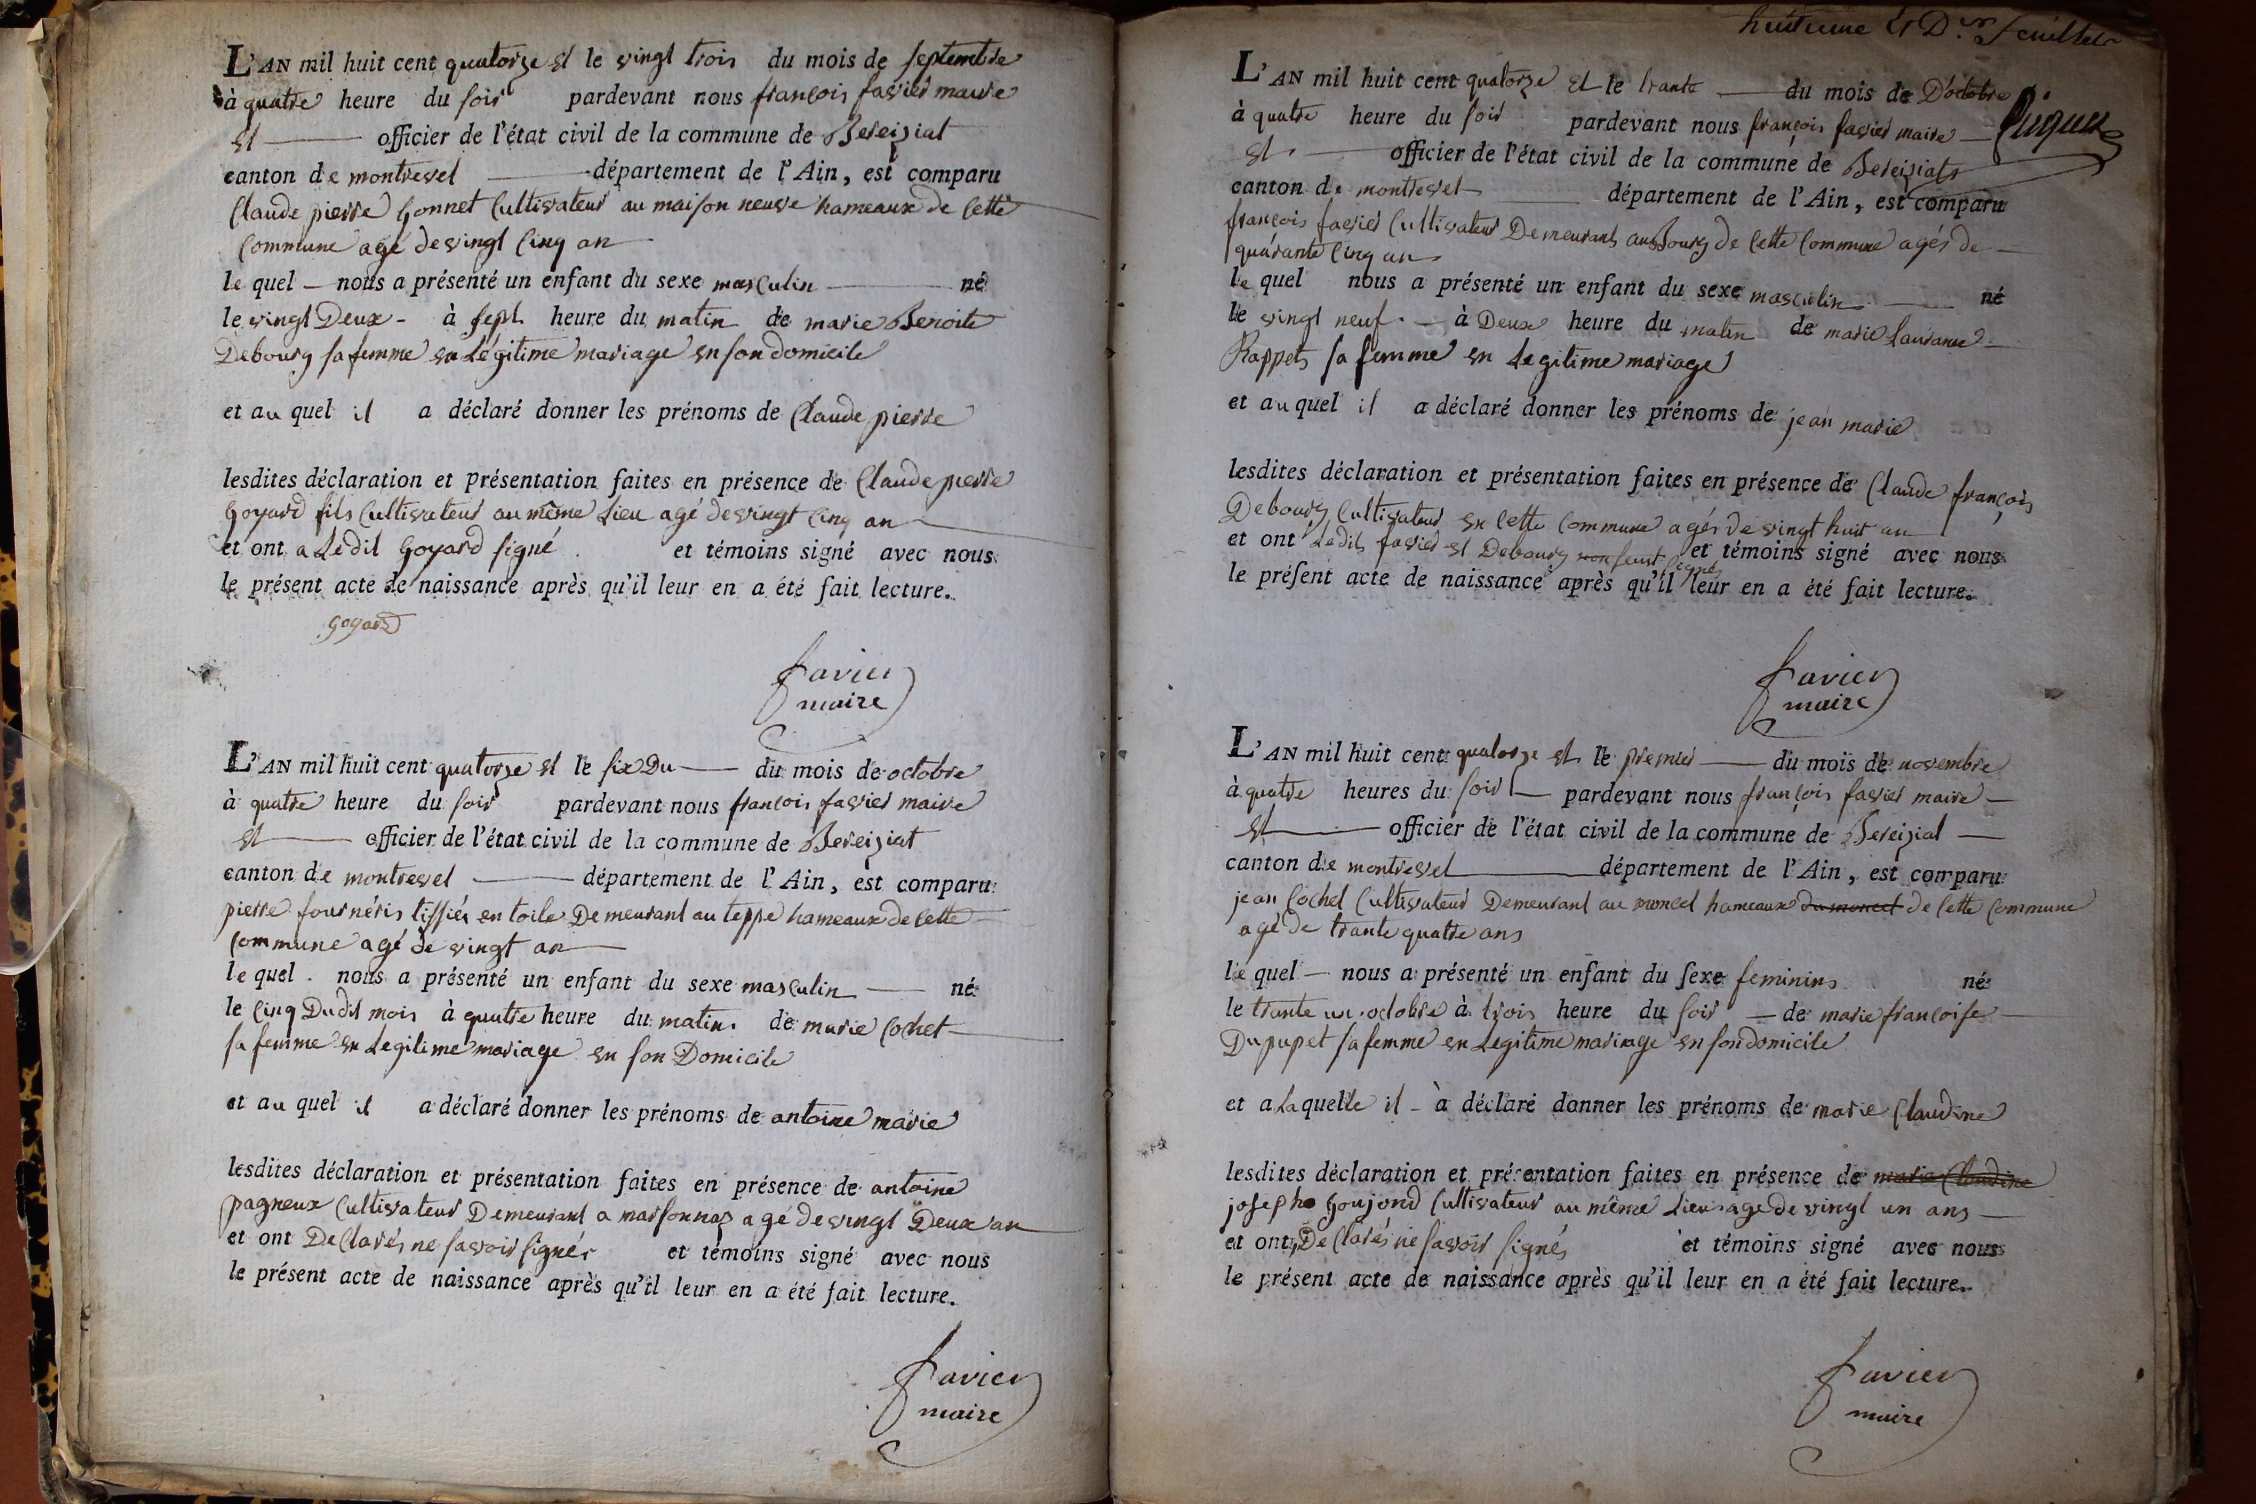 L'AN mil huit cent quatorze et le vingt trois du mois de septembre
à quatre heure du soir pardevant nous françois favier maire
et officier de l'état civil de la commune de Bereiziat
canton de montrevel département de l'Ain, est comparu
Claude pierre Gonnet Cultivateur au maison neuve hameaux de Cette
Commune agé de vingt Cinq an
le quel nous a présenté un enfant du sexe masculin né
le vingt Deux à sept heure du matin de marie Benoite
Debourg sa femme en Légitime mariage en son domicile
et au quel il a déclaré donner les prénoms de Claude pierre
lesdites déclaration et présentation faites en présence de Claude pierre
Goyard fils Cultivateur au même Lieu agé de vingt Cinq an
et ont a Ledit Goyard signé et témoins signé avec nous
le présent acte de naissance après qu'il leur en a été fait lecture.
goyard
favier
maire
L'AN mil huit cent quatorze et le six Du du mois de octobre
à quatre heure du soir pardevant nous françois favier maire
et officier de l'état civil de la commune de Bereiziat
canton de montrevel département de l'Ain, est comparu
pierre fournéris tissier en toile Demeurant au teppe hameaux de Cette
Commune agé de vingt an
le quel nous a présenté un enfant du sexe masculin né
le Cinq Dudit mois à quatre heure du matin de marie Cochet
sa femme en Legitime mariage en son Domicile
et au quel il a déclaré donner les prénoms de antoine marie
lesdites déclaration et présentation faites en présence de antoine
pagneux Cultivateur Demeurant a marsonnas agé de vingt Deux an
et ont DeClarés ne savoir signér et témoins signé avec nous
le présent acte de naissance après qu'il leur en a été fait lecture.
favier
maire
huitieme et Der. feuillet
L'AN mil huit cent quatorze et le trante du mois de D'octobre
à quatre heure du soir pardevant nous françois favier maire
et officier de l'état civil de la commune de Bereiziat
canton de montrevel département de l'Ain, est comparu
françois favier Cultivateur Demeurant au Bourg de Cette Commune agés de
quarante Cinq an
le quel nous a présenté un enfant du sexe masculin né
le vingt neuf à Deux heure du matin de marie Laurance
Rappet sa femme en Legitime mariage
et au quel il a déclaré donner les prénoms de jean marie
lesdites déclaration et présentation faites en présence de Claude françois
Debourg Cultivateur en Cette Commune agés de vingt huit an
et ont Ledit favier et Debourg signés et témoins signé avec nous
le présent acte de naissance après qu'il leur en a été fait lecture.
favier
maire
L'AN mil huit cent quatorze et le premier du mois de novembre
à quatre heures du soir pardevant nous françois favier maire
et officier de l'état civil de la commune de Bereiziat
canton de montrevel département de l'Ain, est comparu
jean Cochet Cultivateur Demeurant au moncel hameaux du moncel de Cette Commune
agé de trante quatre ans
le quel nous a présenté un enfant du sexe feminins né
le trante un octobre à trois heure du soir de marie françoise
Dupupet sa femme en Legitime mariage en son domicile
et a Laquelle il à déclaré donner les prénoms de marie Claudine
lesdites déclaration et présentation faites en présence de marie Claudine
joseph Goujond Cultivateur au même Lieu age de vingt un ans
et ont DeClarés ne savoir signés et témoins signé avec nous
le présent acte de naissance après qu'il leur en a été fait lecture.
favier
maire